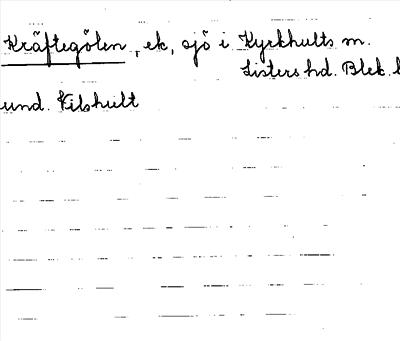 Kräftegölen, ek, sjö i Kyrkhults sn.
Listers hd. Blek. l
und. Kilshult